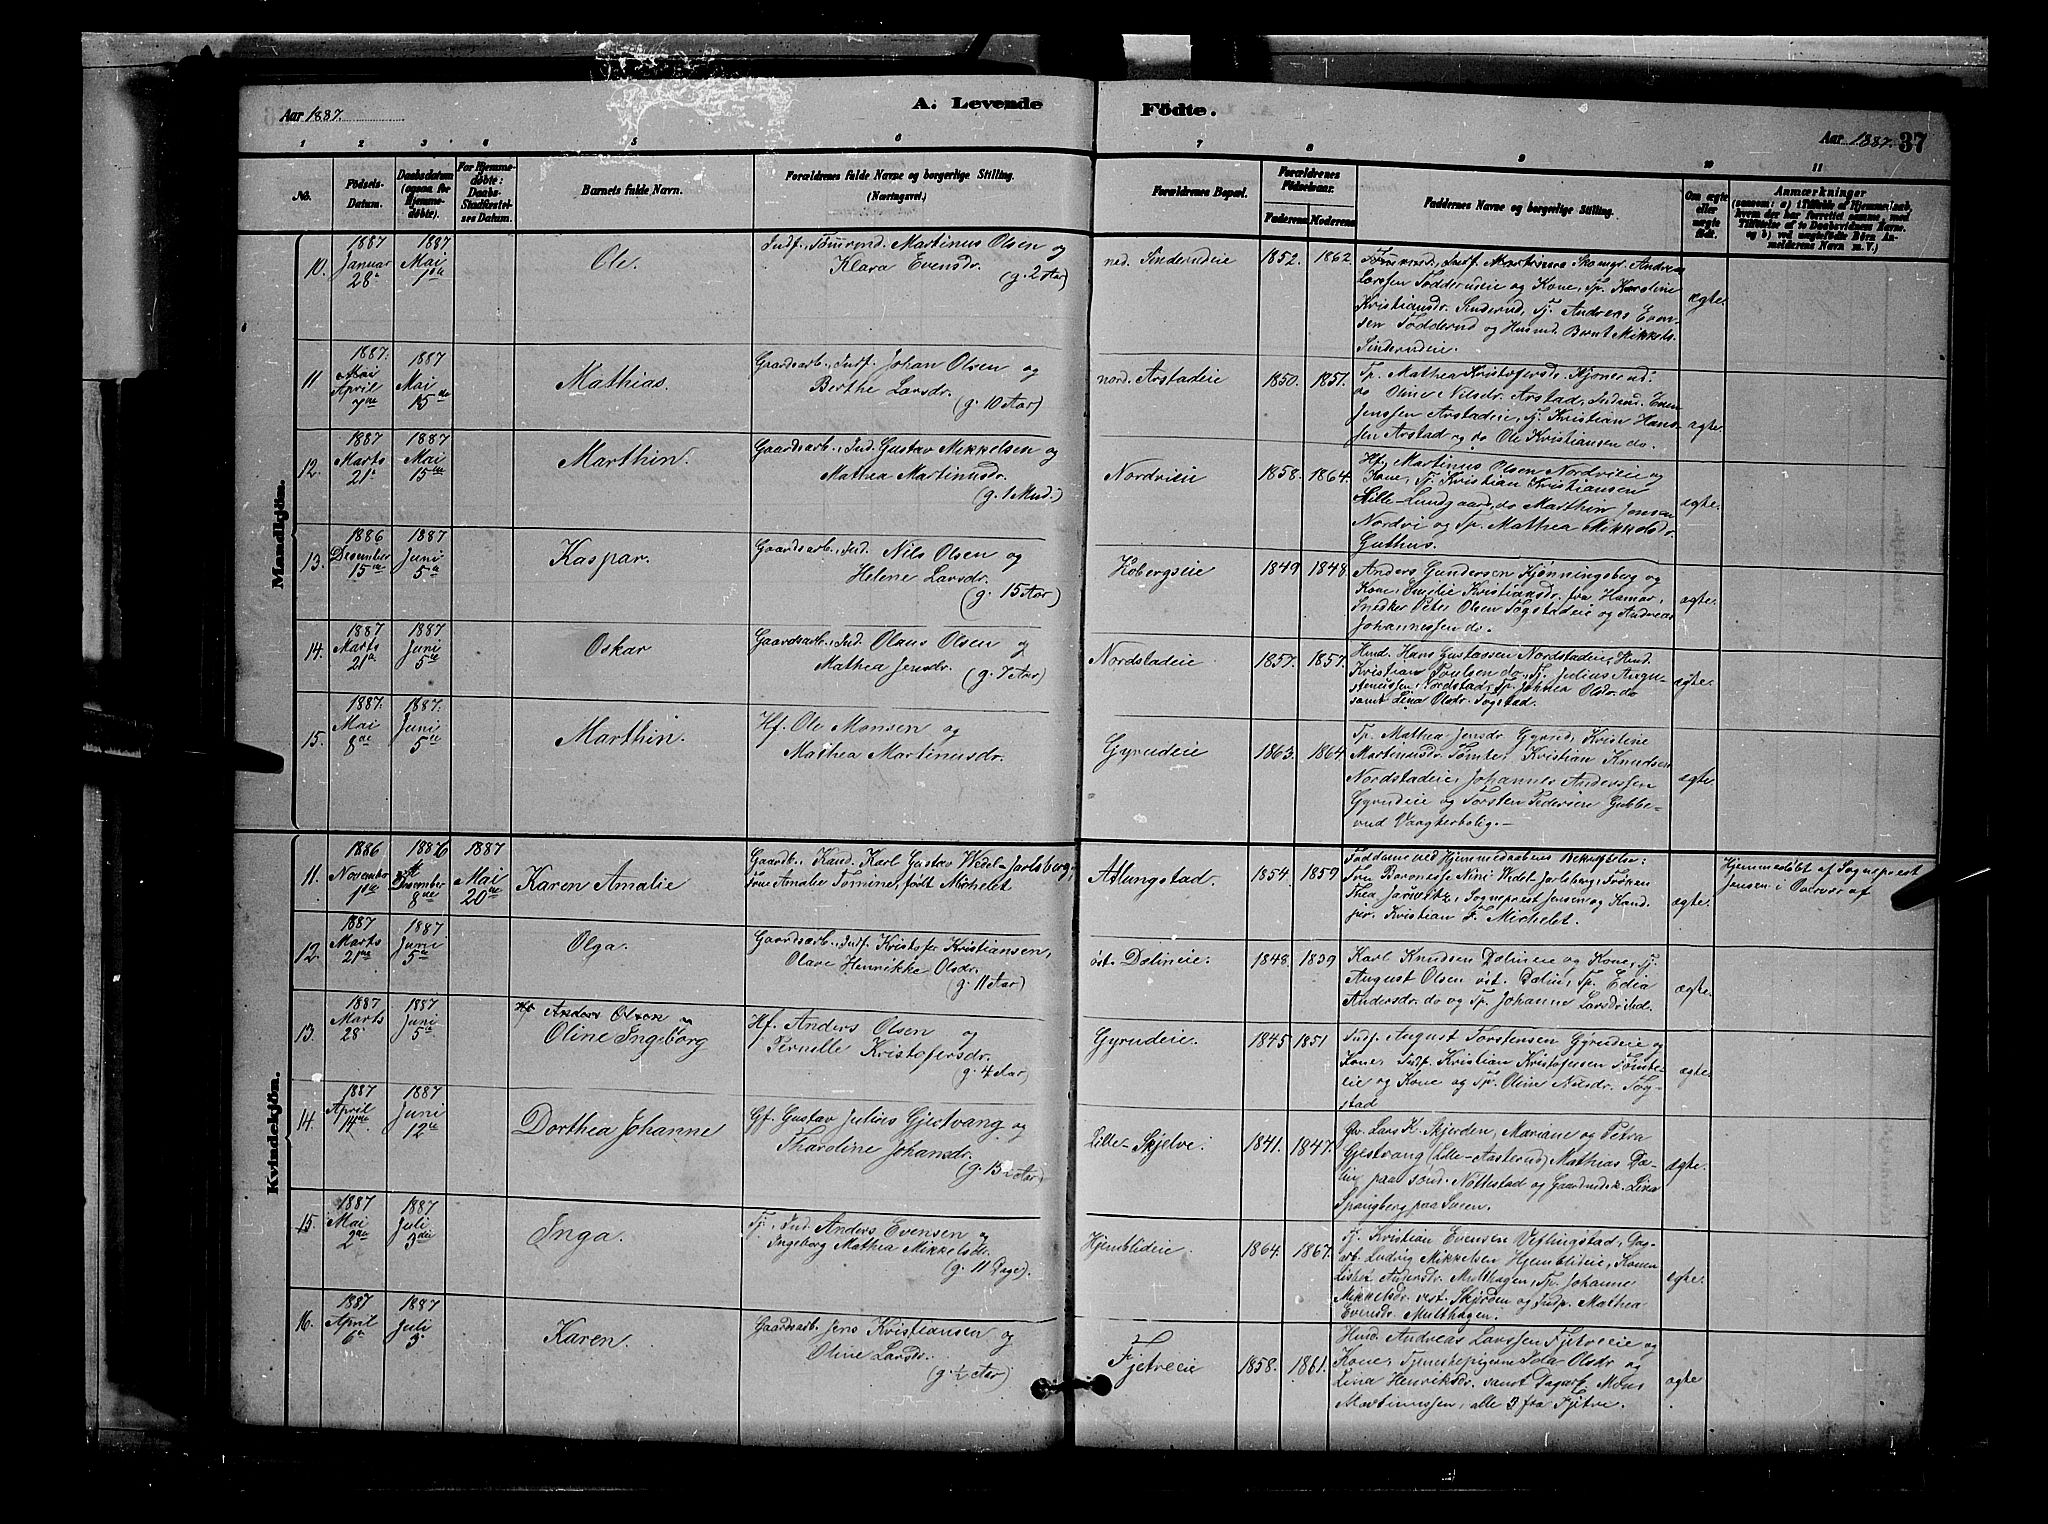 Aar 1887.
A. Levende
Födte.
Aar 1887. 37
1 2 3 4 5 6 7 8 9 10 11
No.
Födsels-Datum.
Daabsdatum (ogsaa for Hjemme-döbte).
For Hjemme-döbte: Daabs-Stadfæstel-ses Datum.
Barnets fulde Navn.
Forældrenes fulde Navne og borgerlige Stilling. (Næringsvei.)
Forældrenes Bopæl.
Forældrenes Födselsaar.
Faderens. Moderens.
Faddernes Navne og borgerlige Stilling.
Om ægte eller uægte födt.
Anmærkninger
Mandkjön.
10. 1887 Januar 28de
1887 Mai 1ste
Ole.
Indf., Tømmermd. Martinus Olsen og
Klara Evensdr.
(g. 2 Aar)
ned. Sinderudeie
1852. 1862.
Skomgr. Andreas
Larssen Fodderudeie og Kone, Tp. Karoline
Kristiansdr. Sinderud, Tj. Andreas Even-
sen Fodderud og Husmd. Bernt Mikkels.
Sinderudeie.
ægte.
11. 1887. April 7de
1887 Mai 15de
Mathias.
Gaardsarb., Indf. Johan Olsen og
Berthe Larsdr.
(g. 10 Aar)
nord. Arstadeie
1850. 1851.
Tp. Mathea Kristofersdr. Kjonerud,
do Oline Nilsdr. Arstad, Indmd. Even
Jenssen Arstadeie, Tj. Kristian Hans-
sen Arstad og do Ole Kristiansen do.
ægte.
12. 1887 Marts 21de
1887 Mai 15de
Marthin.
Gaardsarb., Ind. Gustav Mikkelsen og
Mathea Martinusdr.
(g. 1 Mnd.)
Nordvieie
1858. 1864.
Hf. Martinus Olsen Nordvieie og
Kone, Tj. Kristian Kristiansen
Lille-Lundgaard, do Marthin Jensen
Nordvi og Tp. Mathea Mikkelsdr.
Guthus.
ægte.
13. 1886 Desember 15de
1887 Juni 5te
Kaspar.
Gaardsarb., Ind. Nils Olsen og
Helene Larsdr.
(g. 15 Aar)
Kobergseie
1849 1848.
Anders Gundersen Kjonningsberg og
Kone, Emelie Kristiansdr. fra Hamar,
Snedker Peter Olsen Fogstadeie og Andreas
Johannessen do.
ægte.
14. 1887 Marts 21de
1887 Juni 5te
Oskar
Gaardsarb., Ind. Olaus Olsen og
Mathea Jensdr.
(g. 7 Aar)
Nordstadeie
1857. 1857.
Hmd. Hans Gustavsen Nordstadeie, Hmd.
Kristian Poulsen do, Tj. Julius Augu-
stinussen Nordstad, Tp. Johnea Olsdr. do
samt Lina Olsdr. Fogstad.
ægte.
15. 1887. Mai 8de
1887. Juni 5te
Marthin.
Hf. Ole Monsen og
Mathea Martinusdr.
Gyrudeie
1863. 1864.
Tp. Mathea Jensdr Gyrud, Kristine
Martinusdr. Tomte, Kristian Knudsen
Nordstadeie, Johannes Anderssen
Gyrudeie og Torsten Pedersen Gubbe-
rud Vaagterbolig.
ægte.
Kvindekjön.
11. 1886 November 1ste
1886 Desember 8de
1887 Mai 20de
Karen Amalie
Gaardb. Kand. Karl Gustav Wedel-Jarlsberg,
Frue Amalie Tomine, født Michelet
Atlungstad.
1854. 1859
Fadderne ved Hjemmedaabens Bekræftelse:
Fru Baronesse Nini Wedel Jarlsberg, Frøken
Thea Jarwitz, Sogneprest Jensen og Kand.
jur. Kristian F. Michelet.
ægte.
Hjemmedøbt af Sogneprest
Jensen i
12. 1887 Marts 21de
1887 Juni 5te
Olga.
Gaardsarb., Indf. Kristofer Kristiansen,
Olave Henrikke Olsdr.
(g. 11 Aar)
øst. Dælineie.
1848. 1839
Karl Knudsen Dælineie og Kone, Tj.
August Olsen øst. Dælin, Tp. Edia
Andersdr. do og Tp. Johanne Larsdr.
ægte.
13. 1887 Marts 28
1887 Juni 5te
Hf. Anders Olsen og
Oline Ingeborg
Hf. Anders Olsen og
Pernelle Kristofersdr.
(g. 4 Aar)
Gyrudeie.
1845 1851
Indf. August Torstensen Gyrudeie og
Kone, Indf. Kristian Kristofersen Tomte-
eie og Kone og Tp. Oline Nilsdr. Fog-
stad
ægte.
14. 1887 April 14de
1887 Juni 12te
Dorthea Johanne
Gf. Gustav Julius Gjestvang og
Tharoline Johansdr.
(g. 13½ Aar)
Lille-Skjelve.
1841. 1847.
Gb. Lars K. Skjerden, Mariane og Petra
Gjestvang (Lille-Aasterud) Mathias Dæ-
lin paa sønd. Nøttestad og Gaardmdsk. Lina
Spangberg paa Sveen.
ægte.
15. 1887 Mai 2de
1887 Juli 3die
Inga.
Tj., Ind. Anders Evensen og
Ingeborg Mathea Mikkelsdr.
(g. 11 Dage).
Hjemblideie.
1864. 1867.
Tj. Kristian Evensen Vestingstad, Dag-
arb. Ludvig Mikkelsen Hjemblideie, Konen
Lisbet Andersdr. Multhagen, Tp. Johanne
Mikkelsdr. vest. Skjerden og Indp. Mathea
Evensdr. Multhagen.
ægte.
16. 1887 April 6te
1887 Juli 3.
Karen.
Gaardsarb. Jens Kristiansen og
Oline Larsdr.
(g. ½ Aar)
Fjetreeie
1858. 1861.
Hmd. Andreas Larssen Fjetreeie og
Kone, Tjenestepigerne Ida Olsdr og
Lina Henriksdr. samt Dagarb. Mons
Martinussen, alle 3 fra Fjetre.
ægte.